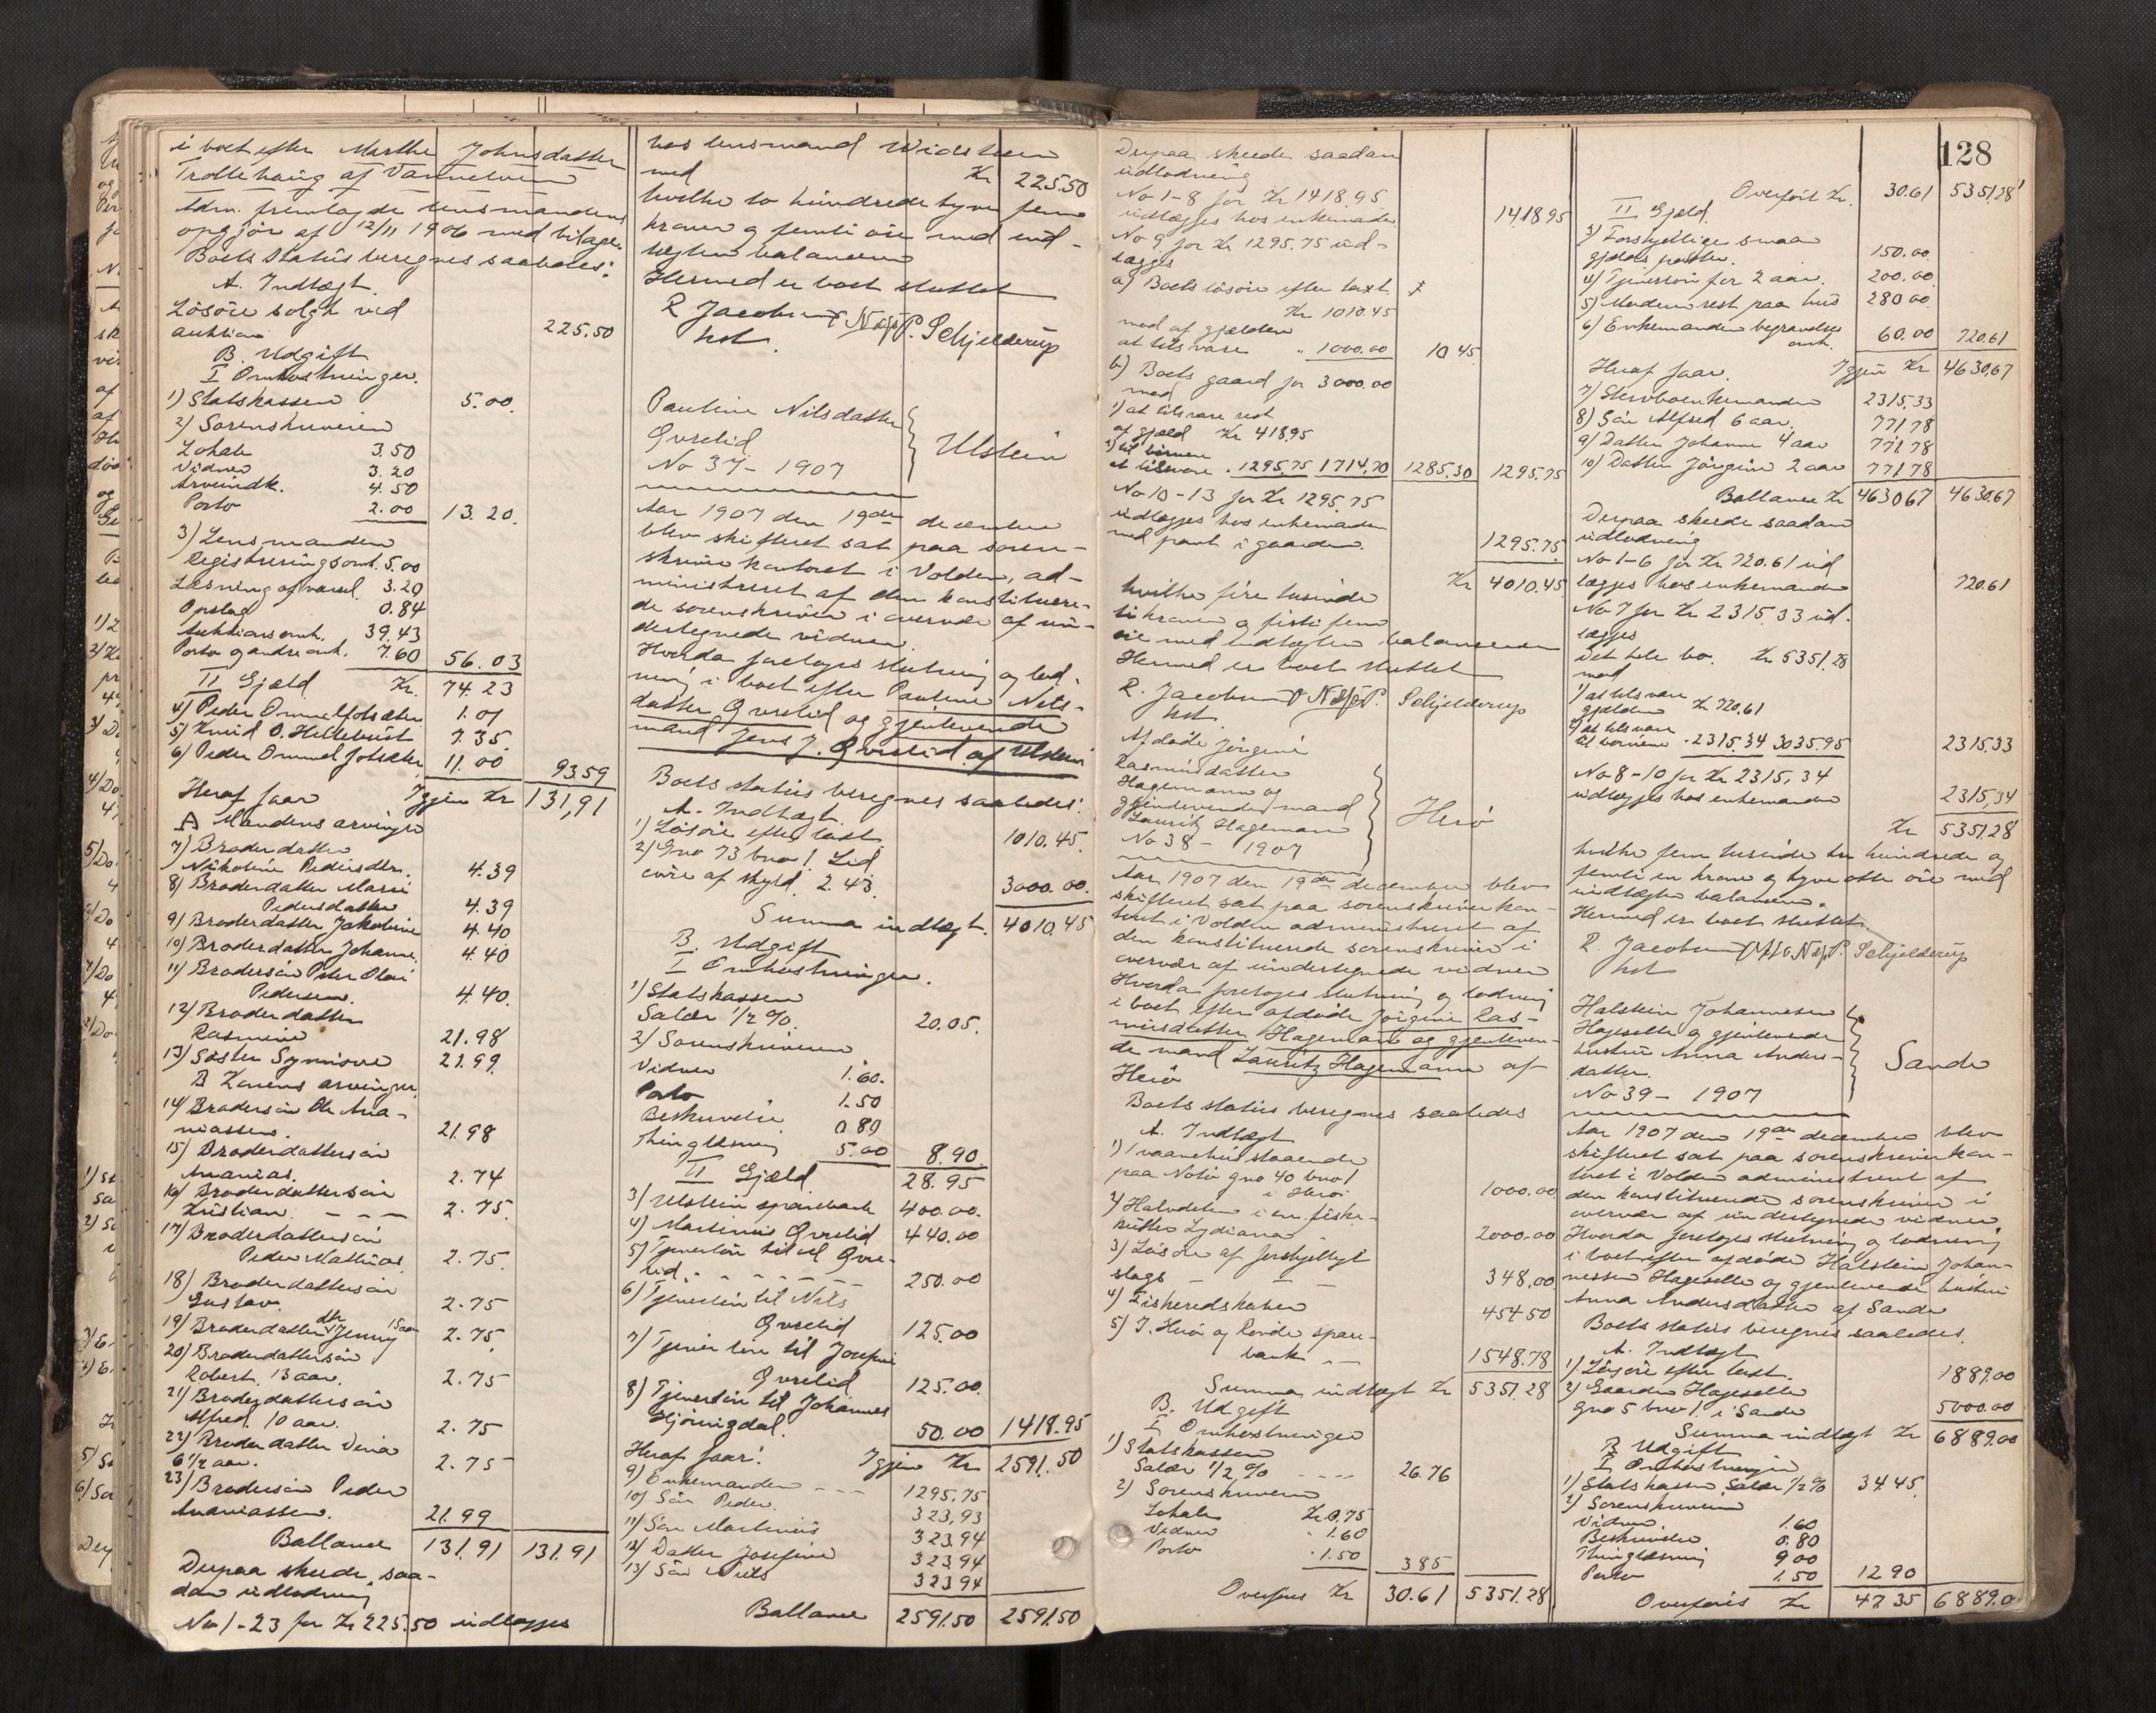 i boet efter Marthe Johnsdatter
Trollehaug af Vannelven
Adm. fremlagde lensmandens
opgjör af 12/11 1906 med bilage.
Boets status beregnes saaledes:
A. Indtægt.
Lösöre solgt ved
auktion 225.50
B. Udgift
I Omkostninger.
1) Statskassen 5.00.
2) Sorenskriveren
Lokale 3.50
Vidner 3.20
Arveindk. 4.50
Porto 2.00 13.20.
3) Lensmanden
Registreringsomk. 5.00
Læsning af varsel 3.20
Opslag 0.84
Auktionsomk. 39.43
Porto og andre omk. 7.60 56.03
II Gjæld Kr. 74.23
4) Peder Ommelfotsæter 1.01
5) Knud O. Hellebust 7.35.
6) Peder Ommelfotsæter 11.00 93.59
Heraf faar Igjen Kr 131,91
A Mandens arvinger
7) Broderdatter
Nikoline Pedersdtr. 4.39
8) Broderdatter Marie
Pedersdatter 4.39
9) Broderdatter Jakobine 4.40
10) Broderdatter Johanne 4.40
11) Brodersön Peter Olai
Pedersen. 4.40.
12) Broderdatter
Rasmine 21.98
13) Söster Synnöve 21.99.
B Konens arvinger
14) Brodersön Ole Ana-
niassen. 21.98
15) Broderdattersön
Ananias. 2.74
16) Broderdattersön
Kristian. - - - 2.75.
17) Broderdattersön
Peder Mathias 2.75.
18) Broderdattersön
Gustav. 2.75
19) Broderdatter dtr Jenny 15 aar 2.75.
20) Broderdattersön
Robert. 13 aar. 2.75
21) Broderdattersön
Alfred. 10 aar. 2.75
22) Broderdatter
6 1/2 aar. 2.75
23) Brodersön Peder
Ananiassen. 21.99
Ballance 131.91 131.91
Derpaa skede saa-
dan udlodning
No 1-23 for Kr 225.50 udlægges
hos lensmand Widsteen
med Kr 225.50
hvilke to hundrede tyve fem
kroner og femti öre med ind-
tægten balancerer
Hermed er boet sluttet
R Jacobsen P. Schjelderup
kst.
Pauline Nilsdatter
Qvrelid
No 37 - 1907
Ulstein
Aar 1907 den 19de december
blev skifteret sat paa soren-
skriverkontoret i Volden, ad-
ministreret af den konstituere-
de sorenskriver i overvær af un-
dertegnede vidner.
Hvorda foretoges slutning og lod-
ning i boet efter Pauline Nils-
datter Qvrelid og gjenlevende
mand Jens J. Qvrelid af Ulstein
Boets status beregnes saaledes:
A. Indtægt.
1) Lösöre efter taxt 1010.45.
2) Gno 73 bno 1. Lid
övre af skyld. 2.43. 3000.00.
Summa indtægt. 4010.45
B. Udgift
I Omkostninger.
1) Statskassen
Salær 1/2 %. 20.05.
2) Sorenskriveren
Vidner 1.60.
Porto 1.50
Beskrivelse 0.80
Thinglæsning 5.00 8.90.
II Gjæld 28.95
3) Ulstein sparebank 400.00.
4) Martinus Qvrelid 440.00
5) Tjenerlön til d. Qvre-
lid. - - - - - - 250.00
6) Tjenerlön til Nils
Qvrelid 125.00
7) Tjenerlön til Josefine
Qvrelid 125.00.
8) Tjenerlön til Johannes
Hjörungdal. 50.00 1418.95
Heraf faar: Igjen Kr 2591.50
9) Enkemanden - - - 1295.75
10) Sön Peder. 323,93
11) Sön Martinus 323.94
12) Datter Josefine 323.94
13) Sön Nils 323.94
Ballance 2591.50 2591.50
Derpaa skede saadan
udlodning
No 1-8 for Kr 1418.95
udlægges hos enkemanden 1418.95
No 9 for Kr 1295.75 ud-
lægges
a) Boets lösöre efter taxt
Kr 1010.45
med af gjælden
at tilsvare " 1000.00 10.45
b) Boets gaard for 3000.00
med
1) at tilsvare rest
af gjæld Kr 418.95
2) til börnene
at tilsvare . 1295.75 1714.70 1285.30 1295.75
No 10-13 for Kr 1295.75
udlægges hos enkemanden
med pant i gaarden. 1295.75.
Kr 4010.45
hvilke fire tusinde
ti kroner og firti fem
öre med indtægten balancerer
Hermed er boet sluttet
R. Jacobsen P. Schjelderup
kst.
Afdöde Jörgine
Rasmusdatter
Hagemann og
gjenlevende mand
Lauritz Hagemann
No 38 - 1907
Herö
Aar 1907 den 19de december blev
skifteret sat paa sorenskriverkon-
toret i Volden administreret af
den konstituerede sorenskriver i
overvær af undertegnede vidner
Hvorda foretoges slutning og lodning
i boet efter afdöde Jörgine Ras-
musdatter Hagemann og gjenleven-
de mand Lauritz Hagemann af
Herö
Boets status beregnes saaledes
A. Indtægt
1) 1 vaanehus staaende
paa Notö gno 40 bno 1
i Herö 1000.00
2) Halvdelen i en fiske-
kutter Lydiana 2000.00
3) Lösöre af forskjelligt
slags - - - 348.00
4) Fiskeredskaber 454.50
5) I Herö og Rovde spare-
bank - - 1548.78
Summa indtægt Kr 5351.28
B. Udgift
I Omkostninger
1) Statskassen
Salær 1/2 % - - - - 26.76
2) Sorenskriveren
Lokale Kr 0.75
Vidner " 1.60
Porto " 1.50 3.85
Overföres Kr 30.61 5351.28
128
Overfört Kr. 30.61 5351.28
II Gjæld.
3) Forskjellige smaa
gjelds poster. 150.00
4) Tjenerlön for 2 aar. 200.00
5) Moderen rest paa hus 280.00
6) Enkemanden begravelses
omk. 60.00 720.61
Heraf faar. Igjen Kr 4630,67
7) Stervboenkemanden 2315,33
8) Sön Alfred 6 aar. 771.78
9) Datter Johanne 4 aar 771.78
10) Datter Jörgine 2 aar 771.78
Ballance Kr 4630.67 4630.67
Derpaa skede saadan
udlodning
No 1-6 for Kr 720.61 ud
lægges hos enkemanden 720.61
No 7 for Kr 2315.33 ud-
lægges
Det hele bo. Kr 5351.28
med
1) at tilsvare
gjelden Kr 720.61
2) at tilsvare
til börnene . 2315.34 3035.95 2315.33
No 8-10 for Kr 2315,34
udlægges hos enkemanden 2315,34
Kr 5351.28
hvilke fem tusinde tre hundrede og
femti en krone og tyve otte öre med
indtægten balancerer.
Hermed er boet sluttet.
R. Jacobsen P. Schjelderup
kst
Halstein Johannesen
Hageselle og gjenlevende
hustru Anna Anders-
datter.
No 39 - 1907
Sande
Aar 1907 den 19de december blev
skifteret sat paa sorenskriverkon-
toret i Volden administreret af
den konstituerede sorenskriver i
overvær af undertegnede vidner.
Hvorda foretoges slutning og lodning
i boet efter afdöde Halstein Johan-
nessen Hageselle og gjenlevende hustru
Anna Andersdatter af Sande
Boets status beregnes saaledes.
A. Indtægt
1) Lösöre efter taxt. 1889.00
2) Gaarden Hageselle
gno 5 bno 1. i Sande 5000.00
Summa indtægt Kr 6889.00
B Udgift
I Omkostninger
1) Statskassen Salær 1/2 % 34.45.
2) Sorenskriveren
Vidner 1.60
Beskrivelse 0.80
Thinglæsning 9.00
Porto 1.50 12.90
Overföres Kr 47.35 6889.0